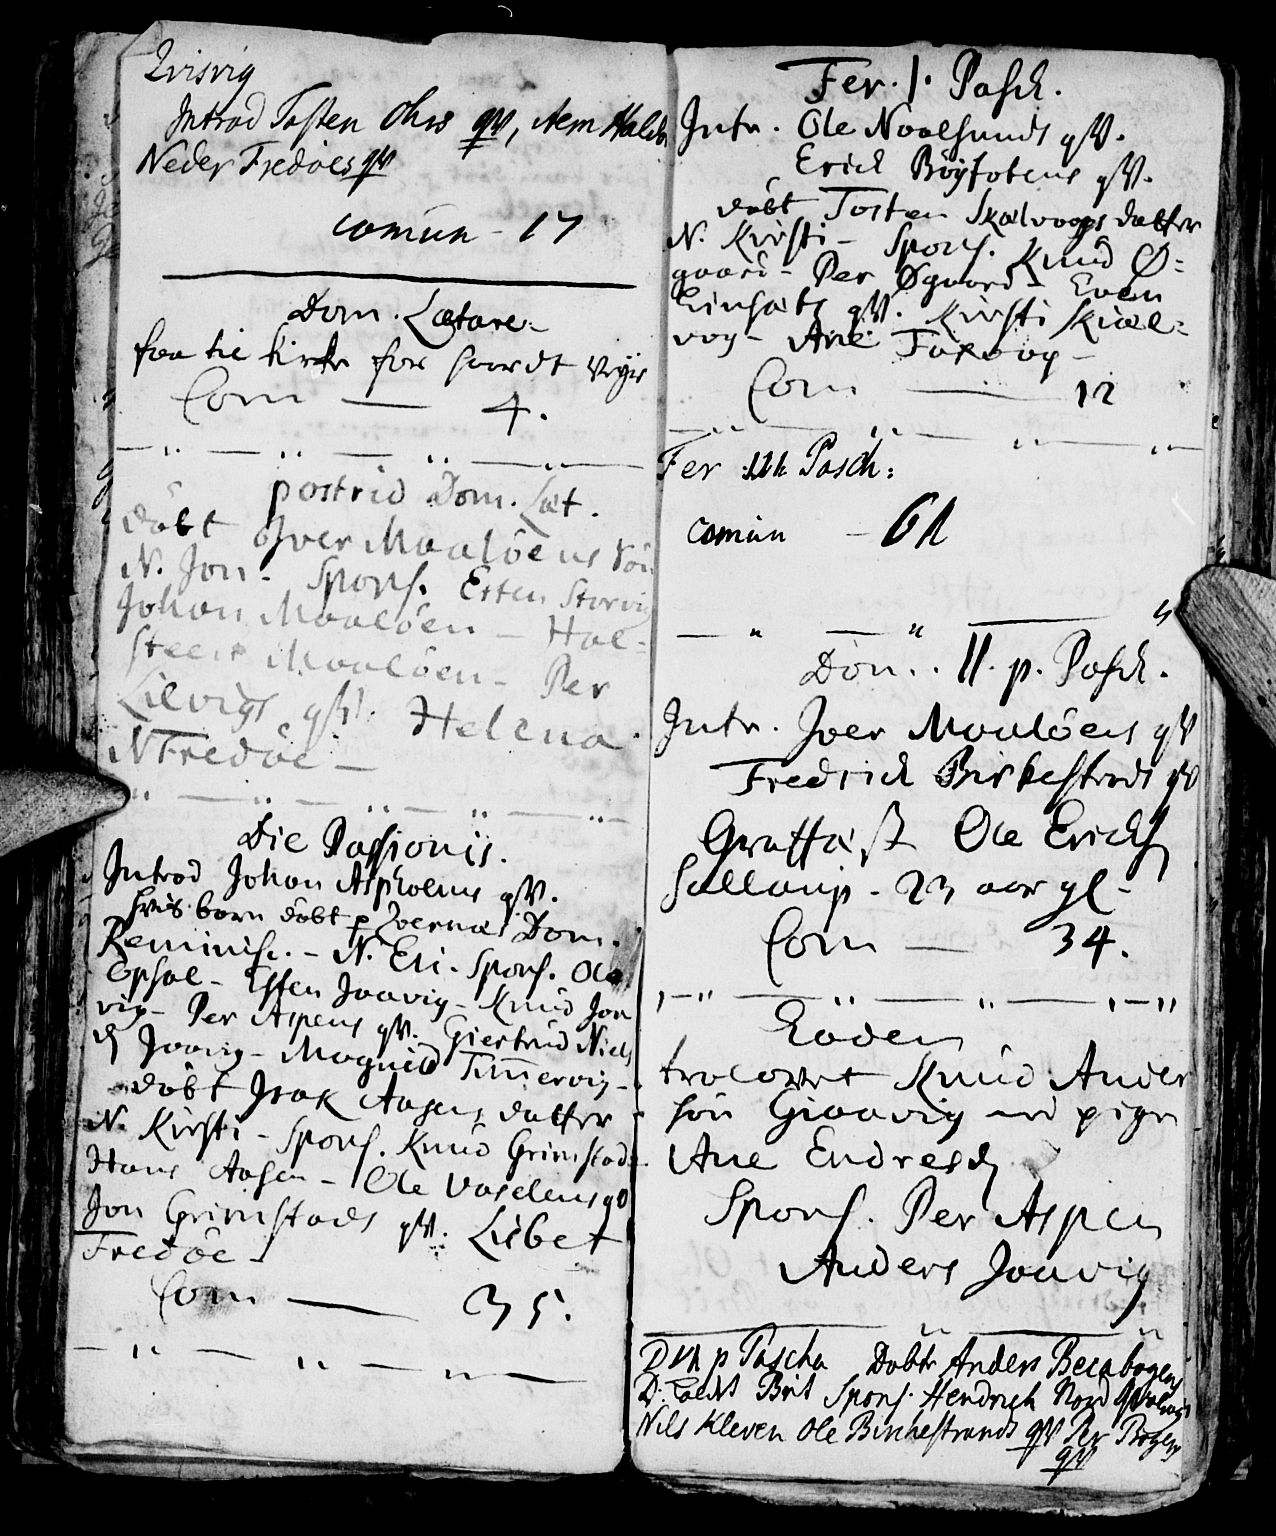 Qvisvig
Introd Tosten Ohrs qv, item Halds
Neder Fredøes qv
comun - 17
Dom. Lætare -
faa til kirke for haardt veyir
Com — 4.
postrid Dom. Læt.
döbt Iver Maalöens Sön
N. Jon - Spons. Esten Storvig
Johan Maalöen - Hal-
steen Maalöen - Per
Lilvigs qv. Helena
N Fredöe -
Die Passionis.
Introd Johan Aspholms qv.
hvis barn döbt p Qvernæs Dom.
Reminisc. - N. Eli - Spons. Ole
Opsal - Esten Joavig - Knud Joa
vig - Per Aspens qv. Giertrud Niels
d Joavig - Magnild Timmervig -
döbt Isak Aasens datter
N. Kirsti - Spons. Knud Grimstads
Hans Aasen - Ole Vaaelens qv
Jon Grimstads qv. Lisbet
Fredöe -
Com — 35.
Fer. 1. Pasch.
Intr. Ole Noalsunds qv.
Erich Böyfotens qv.
döbt Tosten Skalvoogs datter
N. Kirsti - Spons. Knud Ø-
gaard - Per Øgaard - Even
Einsæts qv. Kirsti Skial-
vog - Ane Torvog -
Com — 12
Fer 2n Pasch:
comun - 61
Dom. II. p. Pasch.
Intr. Iver Maalöens qv
Fredrich Birkestrads qv
Grafffæst Ole Erichs
Sallaup - 23 aar gl -
Com — 34.
Eodem
trolovet Knud Ander
sön Gioavig med pigen
Ane Endresd
Spons. Per Aspen
Anders Joavig
D p Pascha Döbt Anders Becabogens
D. Kaldt Brit Spons. Hendrich Nord
Nils Kleven Ole Birchestrands qv Per Bogens
qv